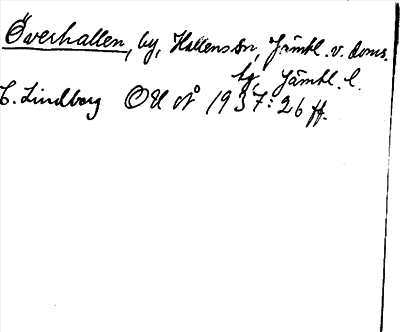 Överhallen, by, Hallens sn, Jämtl. v. doms.
tg, Jämtl. l.
C. Lindberg OU Nº 1937: 26 ff.